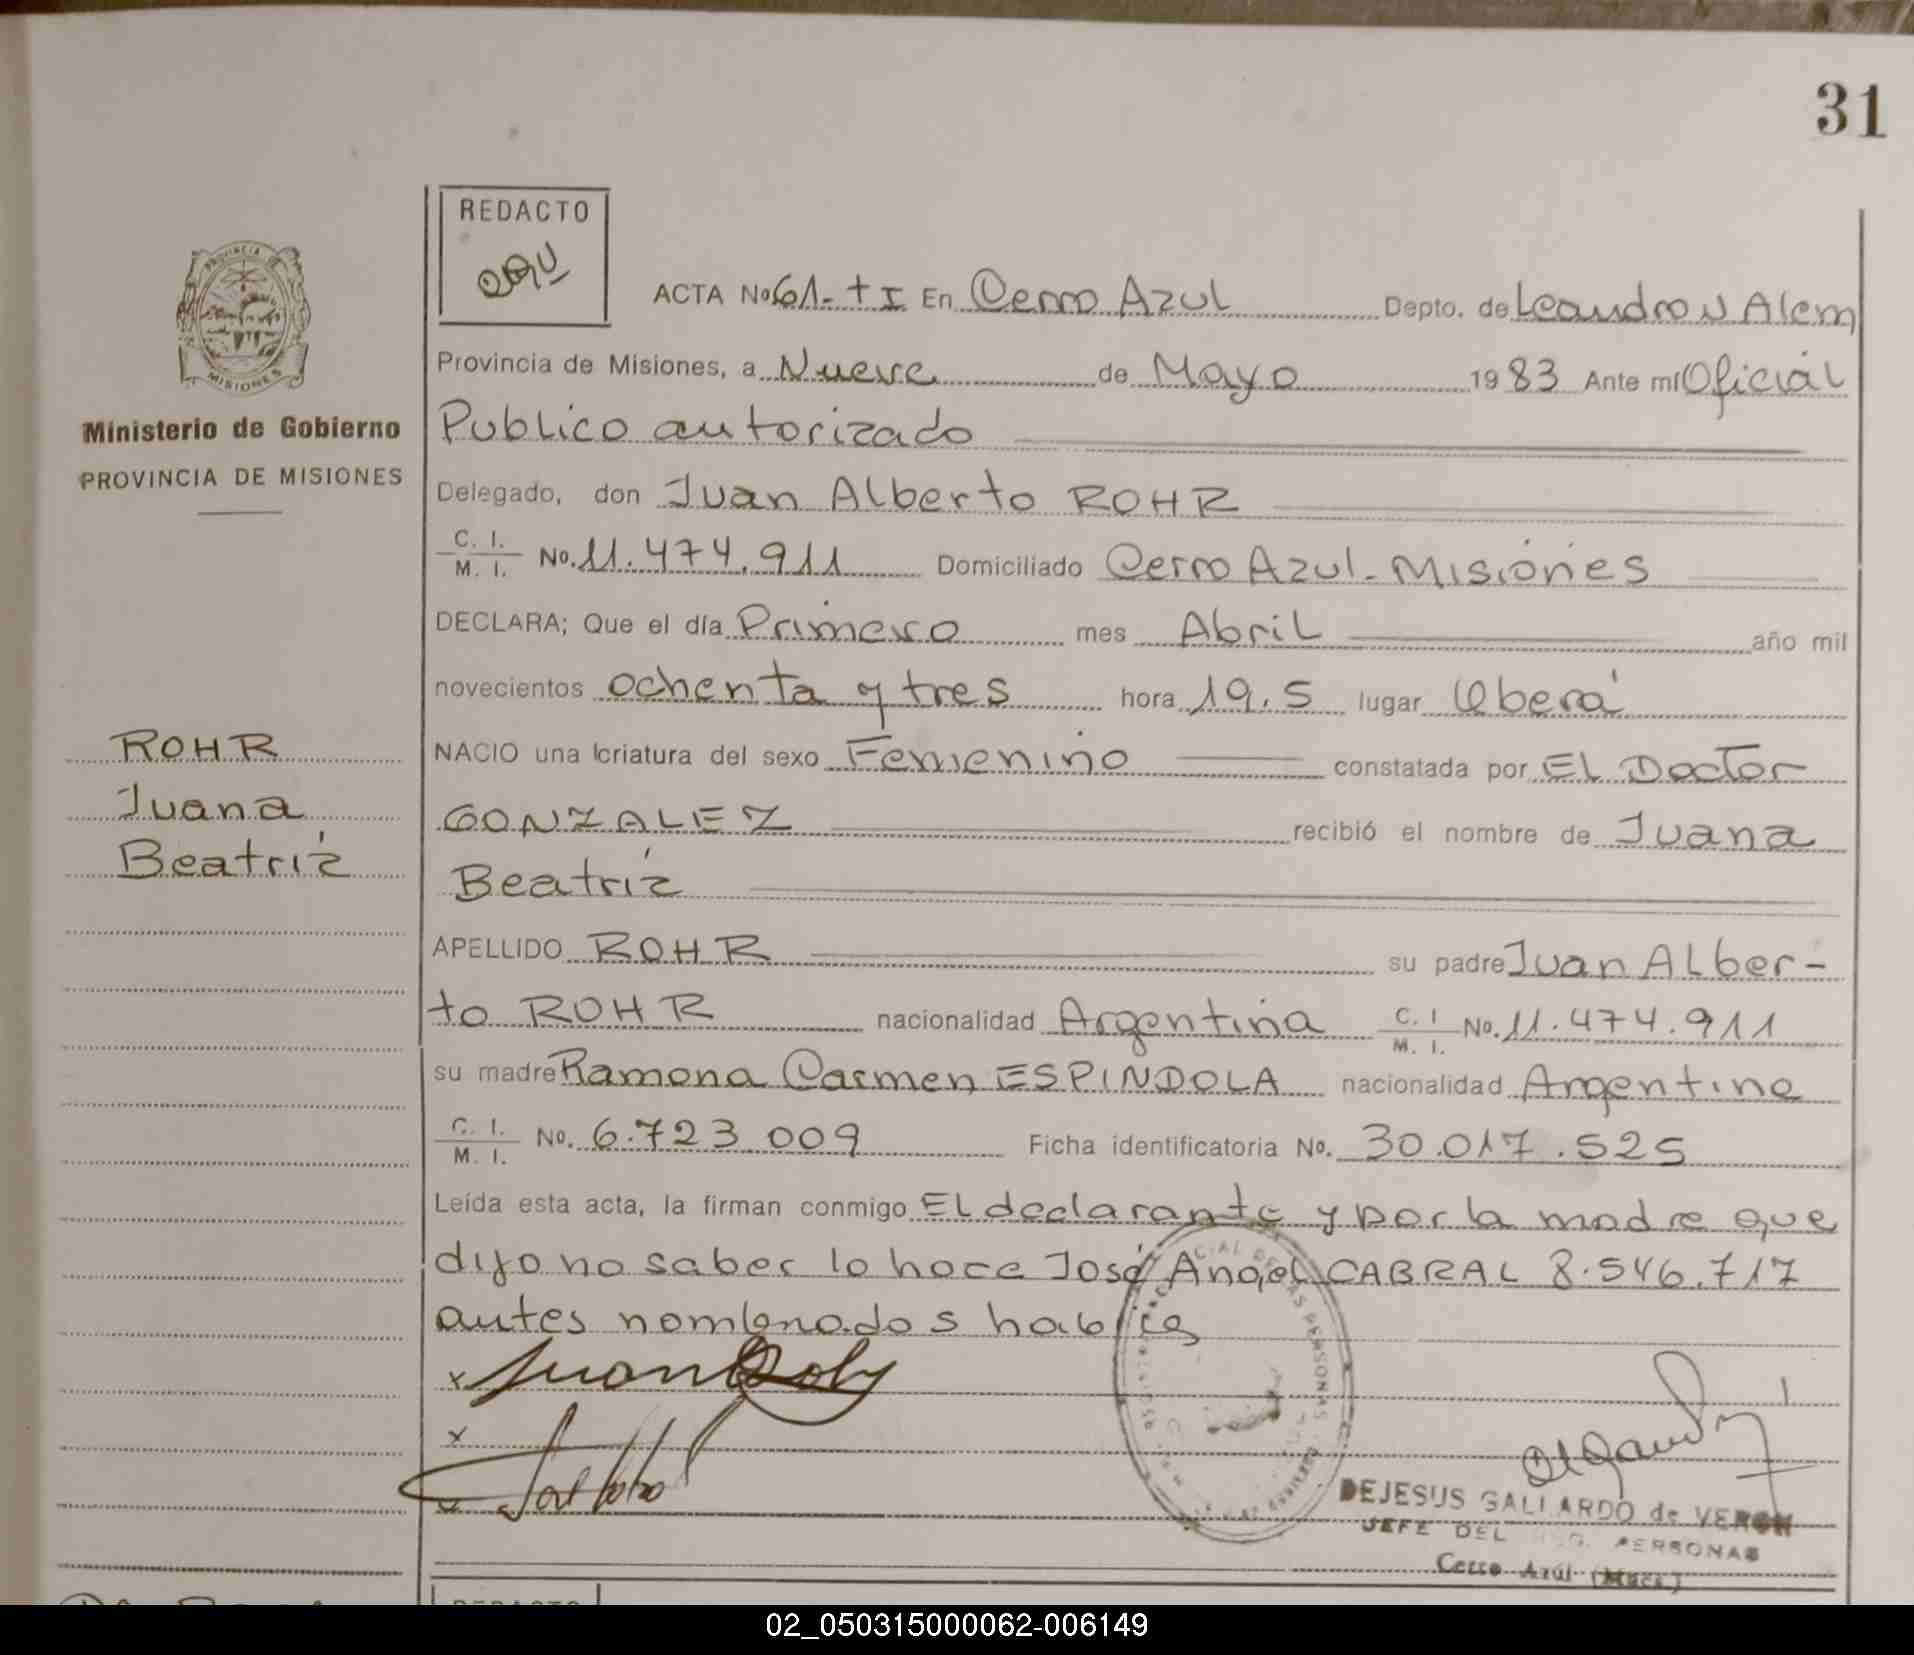 31
REDACTO
PROVINCIA DE
MISIONES
Ministerio de Gobierno
PROVINCIA DE MISIONES
ROHR
Juana
Beatriz
ACTA No 61-tI En Cerro Azul Depto. de Leandro N Alem
Provincia de Misiones, a Nueve de Mayo 1983 Ante mí Oficial
Publico autorizado
Delegado, don Juan Alberto ROHR
C. I. M. I. No. 11.474.911 Domiciliado Cerro Azul - Misiones
DECLARA; Que el día Primero mes Abril año mil
novecientos ochenta y tres hora 19,5 lugar Oberá
NACIO una criatura del sexo Femenino constatada por El Doctor
GONZALEZ recibió el nombre de Juana
Beatriz
APELLIDO ROHR su padre Juan Alber-
to ROHR nacionalidad Argentina C. I M. I. No. 11.474.911
su madre Ramona Carmen ESPINDOLA nacionalidad Argentina
C. I. M. I. No. 6.723.009 Ficha identificatoria No. 30.017.525
Leída esta acta, la firman conmigo El declarante y por la madre que
dijo no saber lo hace José Angel CABRAL 8.546.717
antes nombrados
x
x
DEJESUS GALLARDO de VERON
JEFE DEL REG. PERSONAS
Cerro Azul (Mnes.)
REDACTO
02_050315000062-006149